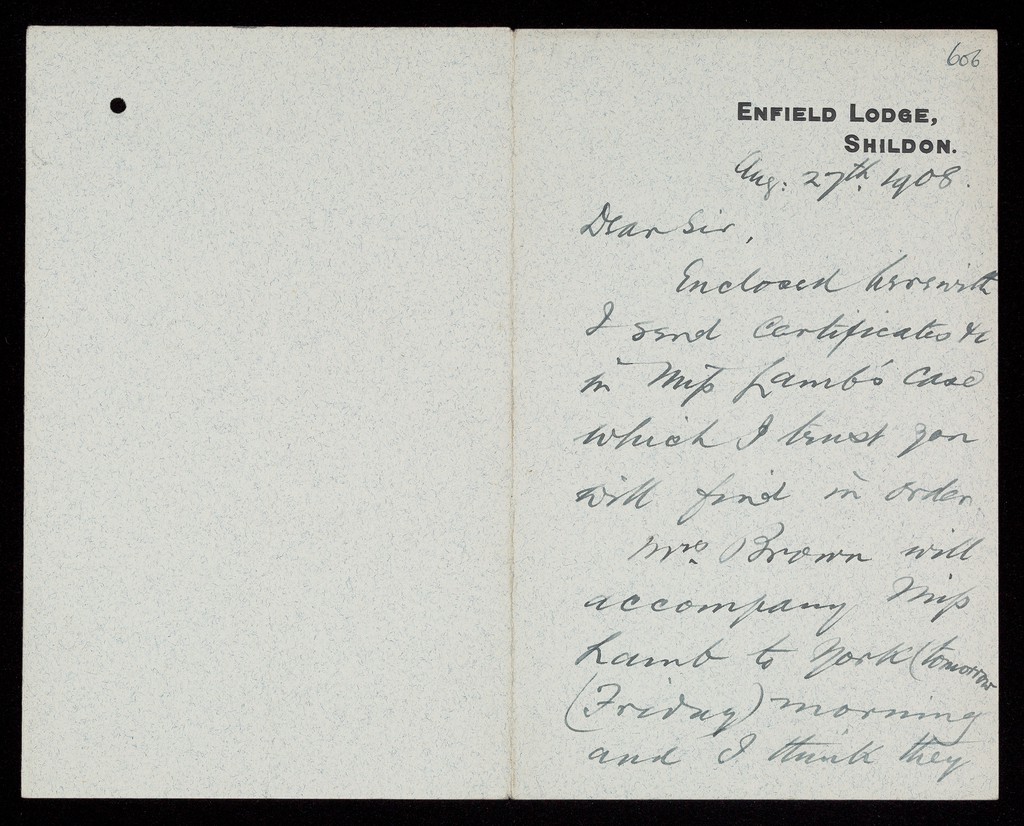 606
ENFIELD LODGE,
SHILDON.
Aug: 27th. 1908.
Dear Sir,
Enclosed herewith
I send Certificates &c
in Miss Lamb's case
which I trust you
will find in order
Mrs. Brown will
accompany Miss
Lamb to York (tomorrow
(Friday) morning
and I think they